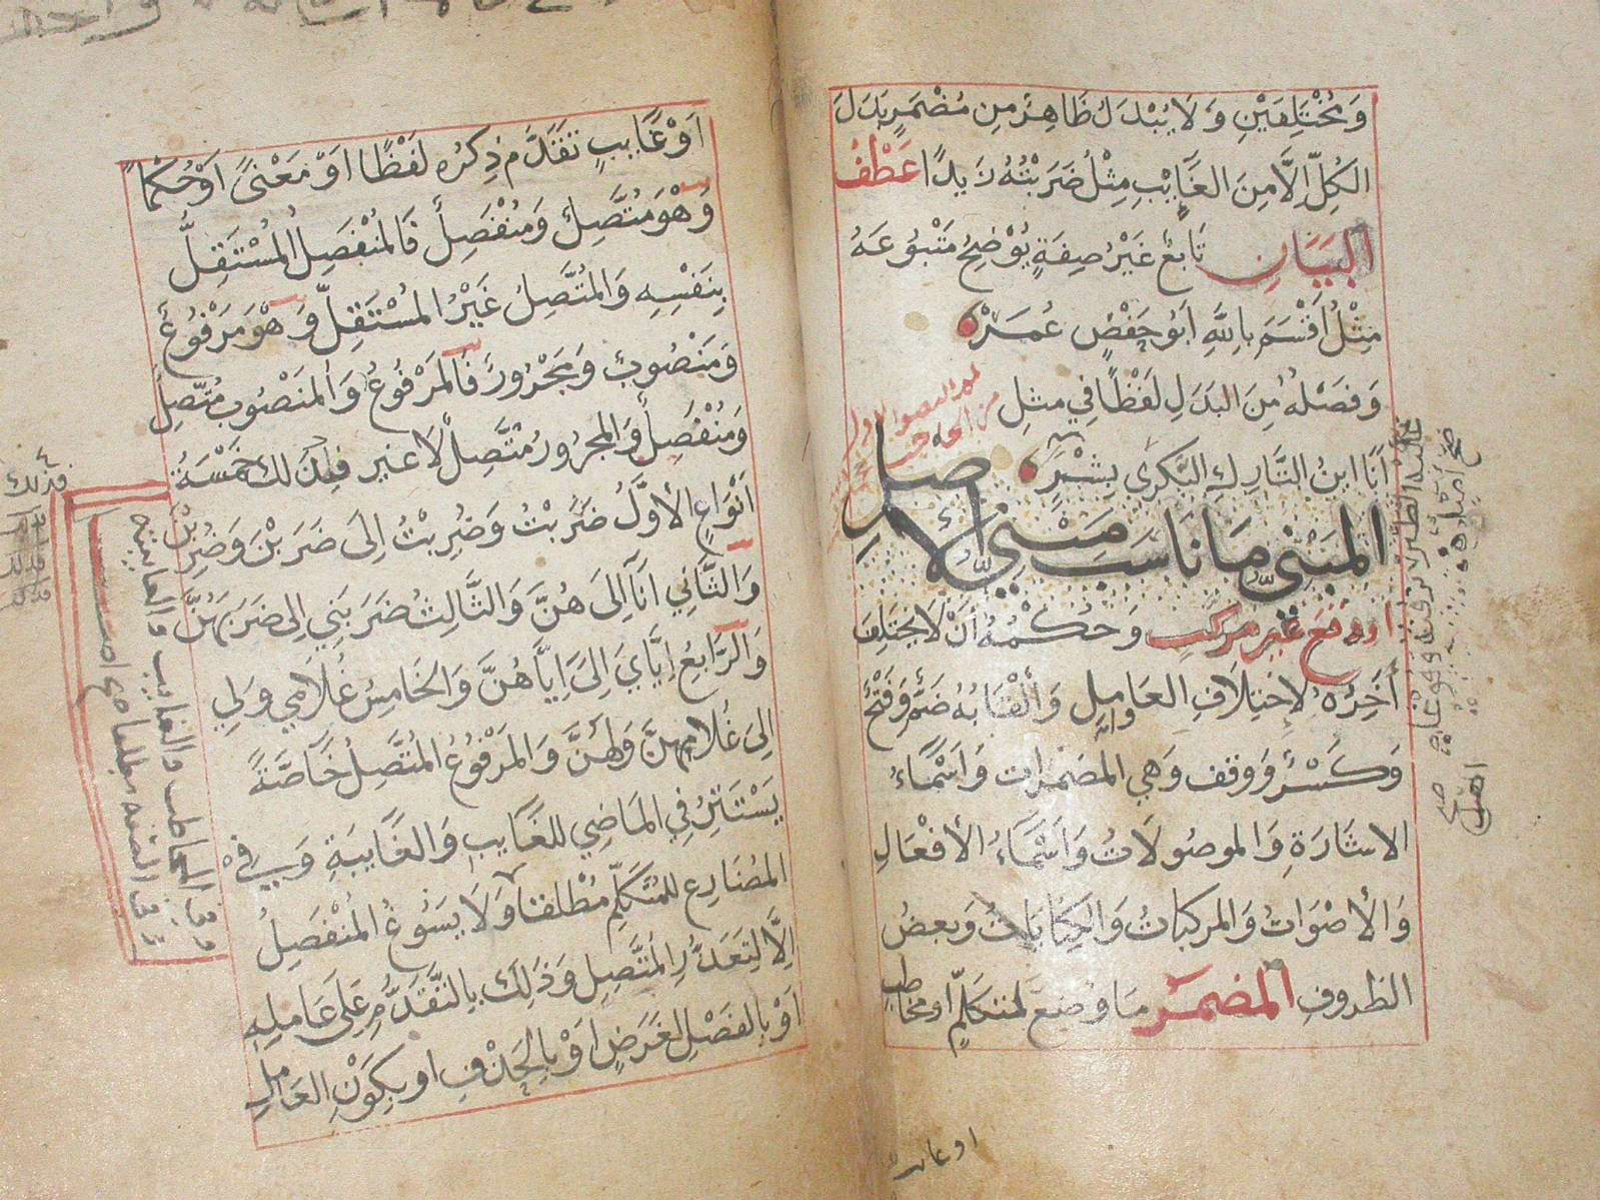 وَمُخْتَلِفَيْنِ وَلَا يُبْدَلُ ظَاهِرٌ مِن مُضْمَرٍ بَدَلَ
الكُلِّ اِلَّا مِنَ الغَايِبِ مِثْلُ ضَرَبْتُهُ زَيدًا عَطْفُ
البَيَانِ تَابِعٌ غَيْرُ صِفَةٍ يُوْضِحُ مَتْبُوعَهُ
مِثْلُ اَقْسَمَ بِاللَّهِ اَبُو حَفْصٍ عُمَرْ
وَفَصْلُهُ مِنَ البَدَلِ لَفْظًا فِي مثلِ
اَنَا ابنُ التَّارِكِ البَكْرِي بِشْرٍ
المَبْنِيُّ مَا نَاسَبَ مَبْنِيَّ الاَصلِ
او وقع غير مركب وَحُكْمُهُ اَنْ لَا يَختَلِفَ
اَخِرُهُ لاِختِلَافِ العَوامِلِ وَاَلْقَابُهُ ضَمٌّ وَفَتْحٌ
وَكَسْرٌ وَوَقف وَهِي المضمرات وَاَسْمَاءُ
الاشَارَةِ وَالموصُولَاتُ وَاَسْمَاءُ الأفْعَالِ
وَالأصْوَاتُ وَالمركبَاتُ وَالكِنَايَاتُ وَبَعضُ
الظروفِ المضمَرُ مَا وُضِعَ لمتكَلِّمٍ اَو مخاطب
او غايب
اَوْ غَايبٍ تَقَدَّمَ ذِكرُه لَفْظًا اَوْ مَعْنىً اَوْ حُكمًا
وَهْوَ مُتَّصِلٌ وَمُنْفَصِلٌ فَالمُنْفَصِلُ المُسْتَقِلُّ
بِنَفْسِهِ وَالمُتَّصِلُ غَيْرُ المُسْتَقِلِّ وَهْوَ مَرْفُوعٌ
وَمَنْصُوبٌ وَمَجْرُورٌ فَالمَرْفُوعُ وَالمَنْصُوبُ مُتَّصِلٌ
وَمُنْفَصِلٌ وَالمجرُورُ مُتَّصِلٌ لَا غير فذلك خَمْسَةُ
اَنْوَاعٍ الأوَّلُ ضَرَبْتُ وَضُرِبْتُ اِلَى ضَرَبْنَ وَضُرِبْنَ
وَالثَّانِي اَنَا اِلَى هُنَّ وَالثَّالِثُ ضَرَبَنِي اِلى ضَرَبَهُنَّ
وَالرَّابِعُ اِيَّايَ اِلَى اِيَّاهُنَّ وَالخَامِسُ غُلَامِي وَلِي
اِلَى غُلَامِهِنَّ وَلَهُنَّ وَالمَرْفُوعُ المُتَّصِلُ خَاصَّةً
يَسْتَتِرُ فِي المَاضِي للغَايبِ وَالغَايبَةِ وَفِي
المُضَارِع للمُتَكَلِّمِ مُطْلَقًا وَلَا يَسُوغُ المُنْفَصِلُ
اِلَّا لِتَعَذُّرِ المُتَّصِلِ وَذَلِكَ بِالتَّقَدُّمِ عَلَى عَامِلِهِ
اَوْ بِالفَصْلِ لِغَرَضٍ اَوْ بِالحَذْفِ اَو بِكَوْنِ العَامِلِ